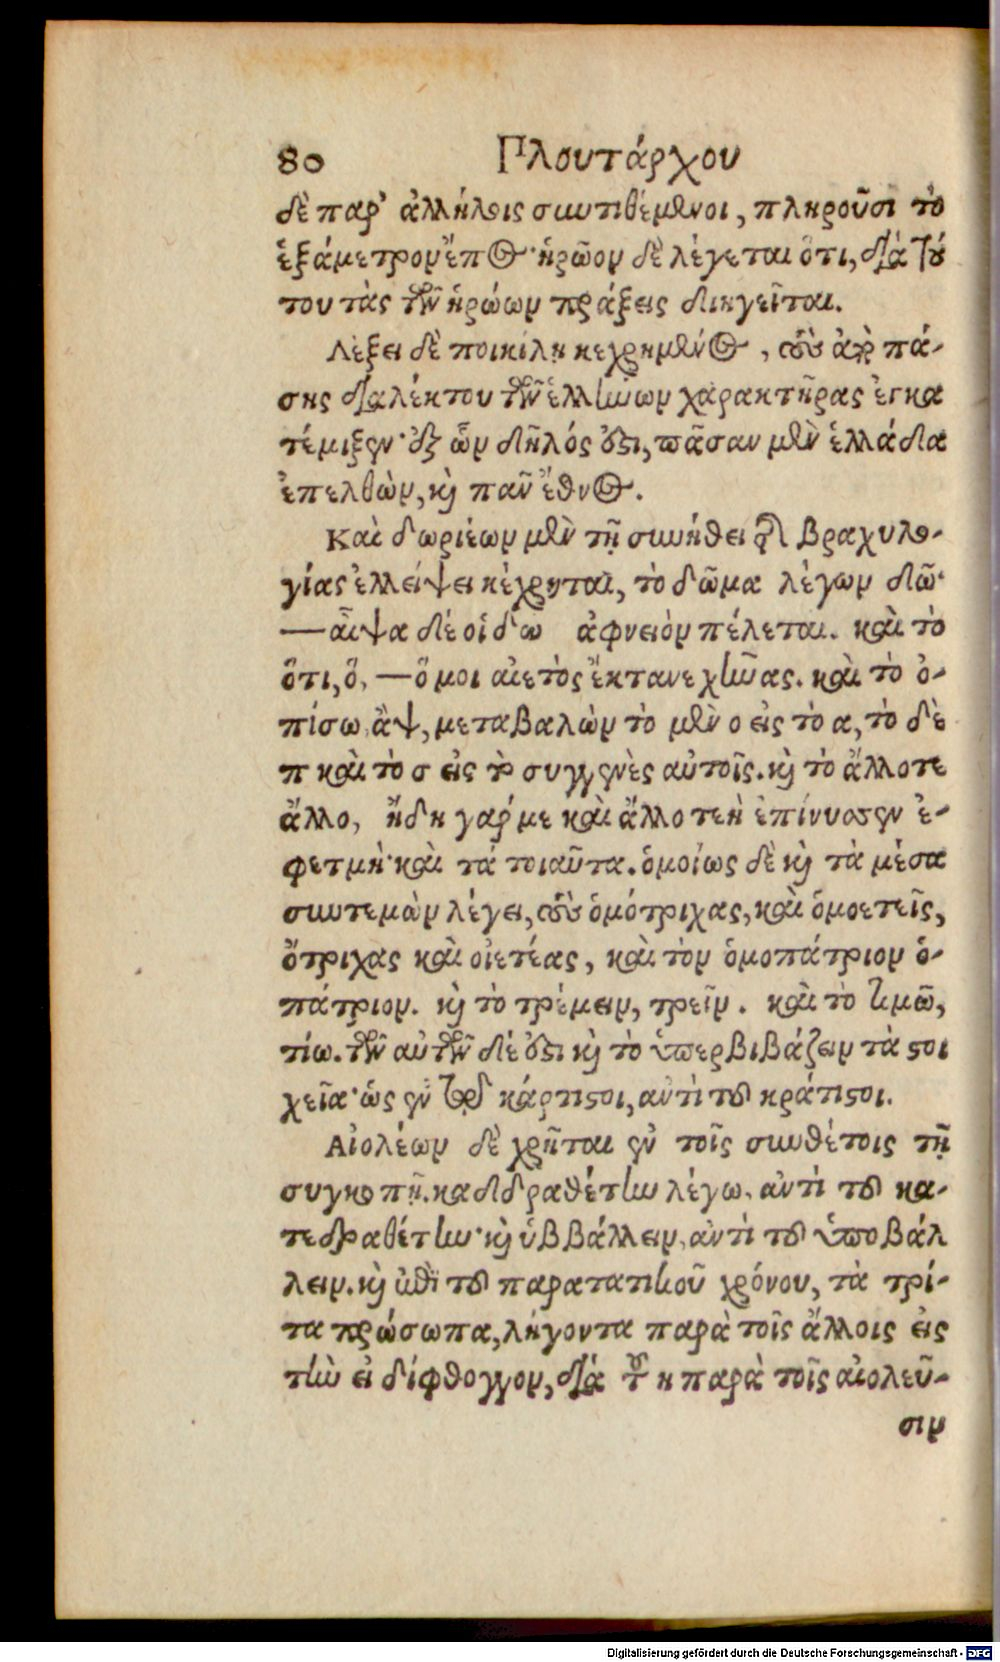 80 Πλουτάρχου
δὲ παρ' ἀλλήλοις συντιθέμενοι, πληροῦσι τὸ
ἑξάμετρον ἔπος· ἡρῶον δὲ λέγεται ὅτι, διὰ τού
του τὰς τῶν ἡρώων πράξεις διηγεῖται.
Λέξει δὲ ποικίλῃ κεχρημένος, τοὺς ἀπὸ πά-
σης διαλέκτου τῶν ἑλλήνων χαρακτῆρας ἐγκα
τέμιξεν· ἐξ ὧν δῆλός ἐστι, πᾶσαν μὲν ἑλλάδα
ἐπελθὼν, καὶ πᾶν ἔθνος.
Καὶ δωριέων μὲν τῇ συνήθει τῆς βραχυλο-
γίας ἐλλείψει κέχρηται, τὸ δῶμα λέγων δῶ·
— αἶψα δέ οἱ δῶ ἀφνειὸν πέλεται. καὶ τὸ
ὅτι, ὅ, — ὅ μοι αἰετὸς ἔκτανε χῆνας. καὶ τὸ ὀ-
πίσω ἂψ, μεταβαλὼν τὸ μὲν ο εἰς τὸ α, τὸ δὲ
π καὶ τὸ σ εἰς τὸ συγγενὲς αὐτοῖς. καὶ τὸ ἄλλοτε
ἄλλο, ἤδη γάρ με καὶ ἄλλο τεὴ ἐπίνυσσεν ἐ-
φετμὴ· καὶ τὰ τοιαῦτα. ὁμοίως δὲ καὶ τὰ μέσα
συντεμὼν λέγει, τοὺς ὁμότριχας, καὶ ὁμοετεῖς,
ὄτριχας καὶ οἰετέας, καὶ τὸν ὁμοπάτριον ὀ-
πάτριον. καὶ τὸ τρέμειν, τρεῖν. καὶ τὸ τιμῶ,
τίω. τῶν αὐτῶν δέ ἐστι καὶ τὸ ὑπερβιβάζειν τὰ στοι
χεῖα· ὡς ἐν τῷ κάρτιστοι, αὐτὶ τοῦ κράτιστοι.
Αἰολέων δὲ χρῆται ἐν τοῖς συνθέτοις τῇ
συγκοπῇ. καδδραθέτην λέγω, ἀντὶ τοῦ κα-
τεδραθέτην· καὶ ὑββάλλειν, ἀντὶ τοῦ ὑποβάλ
λειν. καὶ ἐπὶ τοῦ παρατατικοῦ χρόνου, τὰ τρί-
τα πρόσωπα, λήγοντα παρὰ τοῖς ἄλλοις εἰς
τὴν ει δίφθογγον, διὰ τοῦ η παρὰ τοῖς αἰολεῦ-
σιν
Digitalisierung gefördert durch die Deutsche Forschungsgemeinschaft - DFG